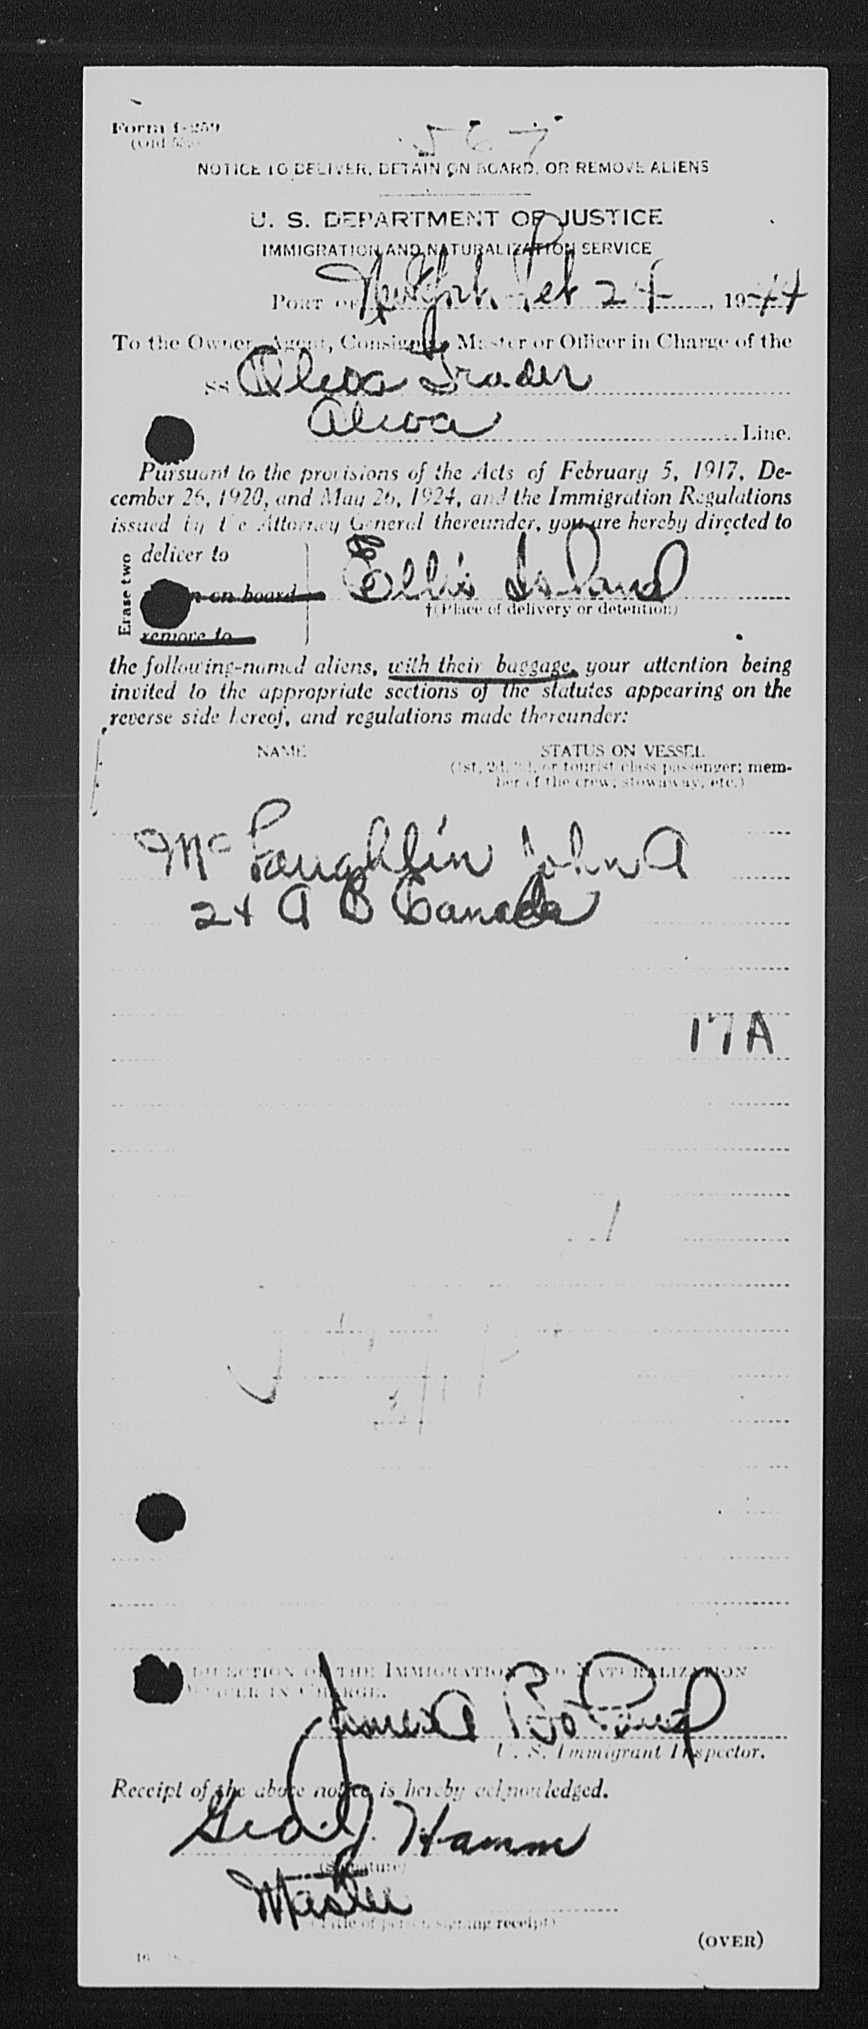 Form I-259
(Old 5
567
NOTICE TO DELIVER, DETAIN ON BOARD, OR REMOVE ALIENS
U. S. DEPARTMENT OF JUSTICE
IMMIGRATION AND NATURALIZATION SERVICE
PORT OF New York Feb 24, 1944
To the Owner, Agent, Consignee, Master or Officer in Charge of the
SS Alcoa Trader
Alcoa Line.
Pursuant to the provisions of the Acts of February 5, 1917, De-
cember 26, 1920, and May 26, 1924, and the Immigration Regulations
issued by the Attorney General thereunder, you are hereby directed to
Erase two
deliver to
on board
remove to
Ellis Island
†(Place of delivery or detention)
the following-named aliens, with their baggage, your attention being
invited to the appropriate sections of the statutes appearing on the
reverse side hereof, and regulations made thereunder:
NAME STATUS ON VESSEL
(1st, 2d, 3d, or tourist class passenger; mem-
ber of the crew; stowaway, etc.)
McLaughlin John A
24 A B Canada
17A
DIRECTION OF THE IMMIGRATION AND NATURALIZATION
OFFICER IN CHARGE.
James A
U. S. Immigrant Inspector.
Receipt of the above notice is hereby acknowledged.
Geo. J. Hamm
(Signature)
Master
(Title of person signing receipt)
(OVER)
16